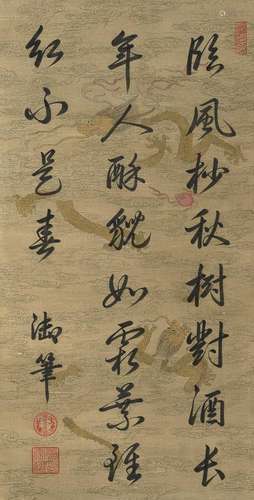 臨風杪秋樹對酒長
年人酔貌如霜葉雖
紅不是春
御筆